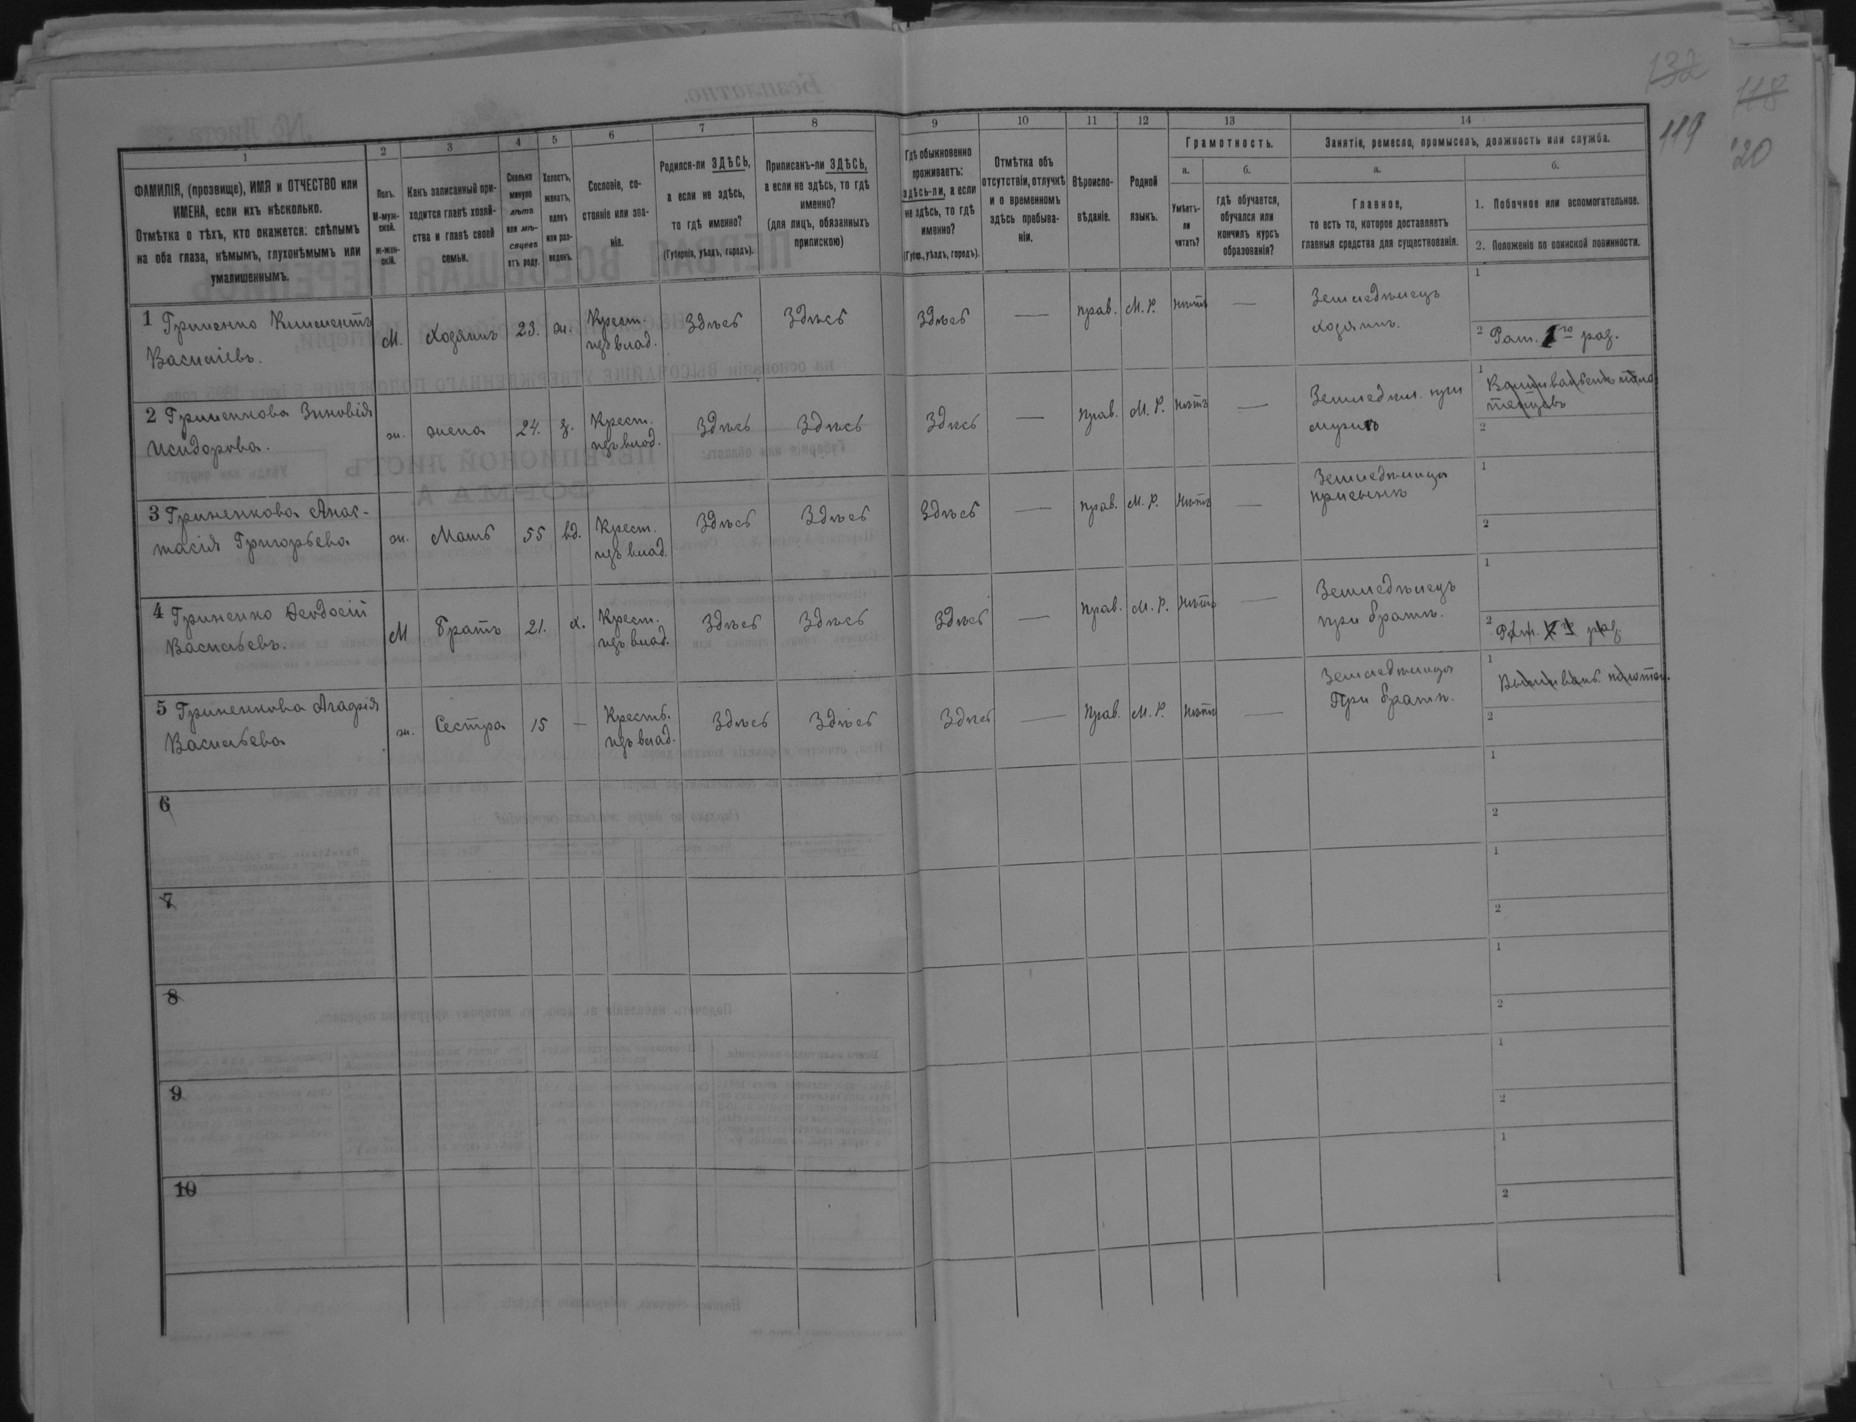 132
118
119
120
1
2
3
4
5
6
7
8
9
10
11
12
13
14
ФАМИЛІЯ, (прозвище), ИМЯ и ОТЧЕСТВО или
ИМЕНА, если ихъ нѣсколько.
Отмѣтка о тѣхъ, кто окажется: слѣпымъ
на оба глаза, нѣмымъ, глухонѣмымъ или
умалишеннымъ.
Полъ.
М-муж-
ской.
ж-жен-
скій.
Какъ записанный при-
ходится главѣ хозяй-
ства и главѣ своей
семьи.
Сколько
минуло
лѣтъ
или мѣ-
сяцевъ
отъ роду.
Холостъ,
женатъ,
вдовъ
или раз-
веденъ.
Сословіе, со-
стояніе или зва-
ніе.
Родился-ли ЗДѢСЬ,
а если не здѣсь,
то гдѣ именно?
(Губернія, уѣздъ, городъ).
Приписанъ-ли ЗДѢСЬ,
а если не здѣсь, то гдѣ
именно?
(для лицъ, обязанныхъ
припискою)
Гдѣ обыкновенно
проживаетъ:
здѣсь-ли, а если
не здѣсь, то гдѣ
именно?
(Губер., уѣздъ, городъ).
Отмѣтка объ
отсутствіи, отлучкѣ
и о временномъ
здѣсь пребыва-
ніи.
Вѣроиспо-
вѣданіе.
Родной
языкъ.
Грамотность.
а.
Умѣетъ-
ли
читать?
б.
гдѣ обучается,
обучался или
кончилъ курсъ
образованія?
Занятіе, ремесло, промыселъ, должность или служба.
а.
Главное,
то есть то, которое доставляетъ
главныя средства для существованія.
б.
1. Побочное или вспомогательное.
2. Положеніе по воинской повинности.
1 Гриненко Климентъ
Василіевъ.
М.
Хозяинъ
23.
ж.
Крест.
изъ влад.
Здѣсь
Здѣсь
Здѣсь
—
прав.
М. Р.
Нѣтъ
—
Земледѣлецъ
хозяинъ.
1
2 Рат. 1го раз.
2 Гриненкова Зиновія
Исидорова.
ж.
жена
24.
з.
Крест.
изъ влад.
Здѣсь
Здѣсь
Здѣсь
—
прав.
М. Р.
Нѣтъ
—
Земледѣл. при
мужѣ
1
2
3 Гриненкова Анас-
тасія Григорьева
ж.
Мать
55
вд.
Крест.
изъ влад.
Здѣсь
Здѣсь
Здѣсь
—
прав.
М. Р.
Нѣтъ
—
Земледѣлица
при сынѣ
1
2
4 Гриненко Феодосій
Васильевъ.
М
Братъ
21.
х.
Крест.
изъ влад.
Здѣсь
Здѣсь
Здѣсь
—
прав.
М. Р.
Нѣтъ
—
Земледѣлецъ
при братѣ.
1
2
5 Гриненкова Агафія
Васильева
ж.
Сестра
15
—
Крестъ.
изъ влад.
Здѣсь
Здѣсь
Здѣсь
—
Прав.
М. Р.
Нѣтъ
—
Земледѣлица
При братѣ.
1
2
6
1
2
7
1
2
8
1
2
9
1
2
10
1
2